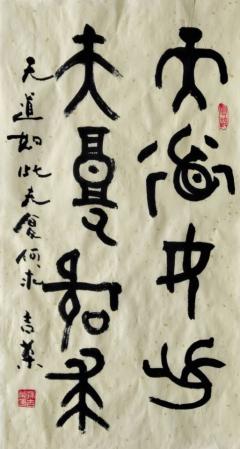 天道如此
夫复何求
天道如此夫复何求 吉業